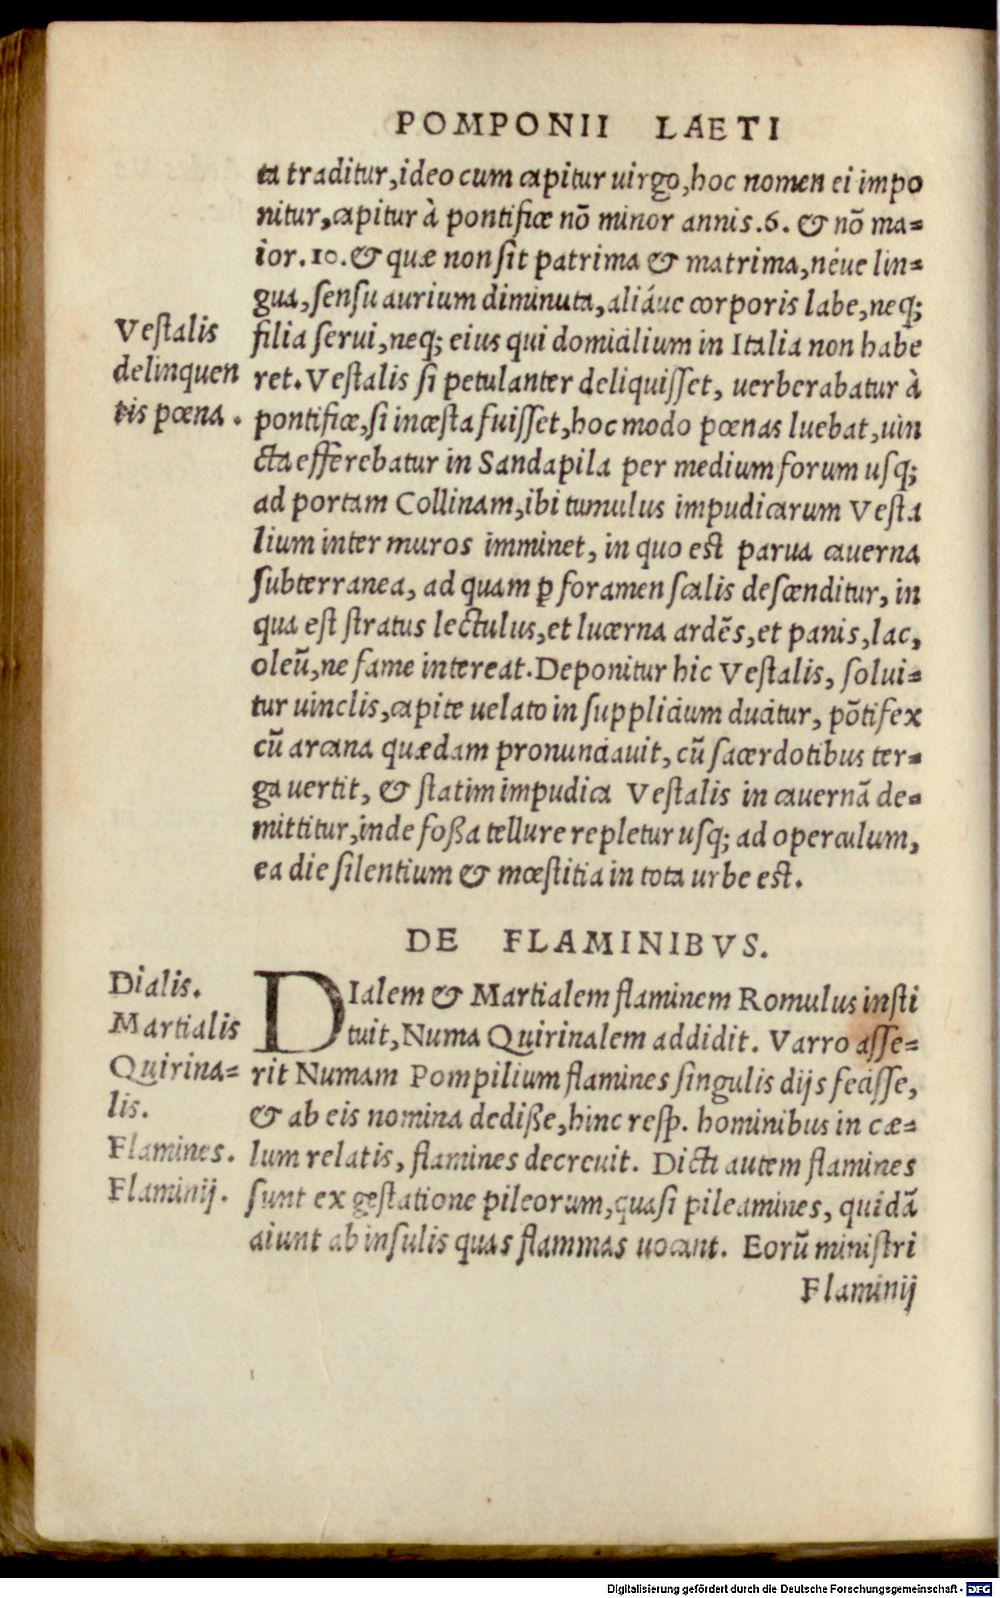 POMPONII LAETI
ta traditur, ideo cum capitur uirgo, hoc nomen ei impo
nitur, capitur à pontifice nõ minor annis. 6. & nõ ma=
ior. 10. & quæ non sit patrima & matrima, néue lin=
gua, sensu aurium diminuta, aliáue corporis labe, neq;
Vestalis
delinquen
tis pœna.
filia serui, neq; eius qui domicilium in Italia non habe
ret. Vestalis si petulanter deliquisset, uerberabatur à
pontifice, si incesta fuisset, hoc modo pœnas luebat, uin
cta efferebatur in Sandapila per medium forum usq;
ad portam Collinam, ibi tumulus impudicarum Vesta
lium inter muros imminet, in quo est parua cauerna
subterranea, ad quam ꝑ foramen scalis descenditur, in
qua est stratus lectulus, et lucerna ardẽs, et panis, lac,
oleũ, ne fame intereat. Deponitur hic Vestalis, solui=
tur uinclis, capite uelato in supplicium ducitur, põtifex
cũ arcana quædam pronunciauit, cũ sacerdotibus ter=
ga uertit, & statim impudica Vestalis in cauernã de=
mittitur, inde fossa tellure repletur usq; ad operculum,
ea die silentium & mœstitia in tota urbe est.
DE FLAMINIBVS.
Dialis.
Martialis
Quirina=
lis.
Flamines.
Flaminij.
DIalem & Martialem flaminem Romulus insti
tuit, Numa Quirinalem addidit. Varro asse=
rit Numam Pompilium flamines singulis dijs fecisse,
& ab eis nomina dedisse, hinc resp. hominibus in cæ=
lum relatis, flamines decreuit. Dicti autem flamines
sunt ex gestatione pileorum, quasi pileamines, quidã
aiunt ab insulis quas flammas uocant. Eorũ ministri
Flaminij
Digitalisierung gefördert durch die Deutsche Forschungsgemeinschaft - DFG